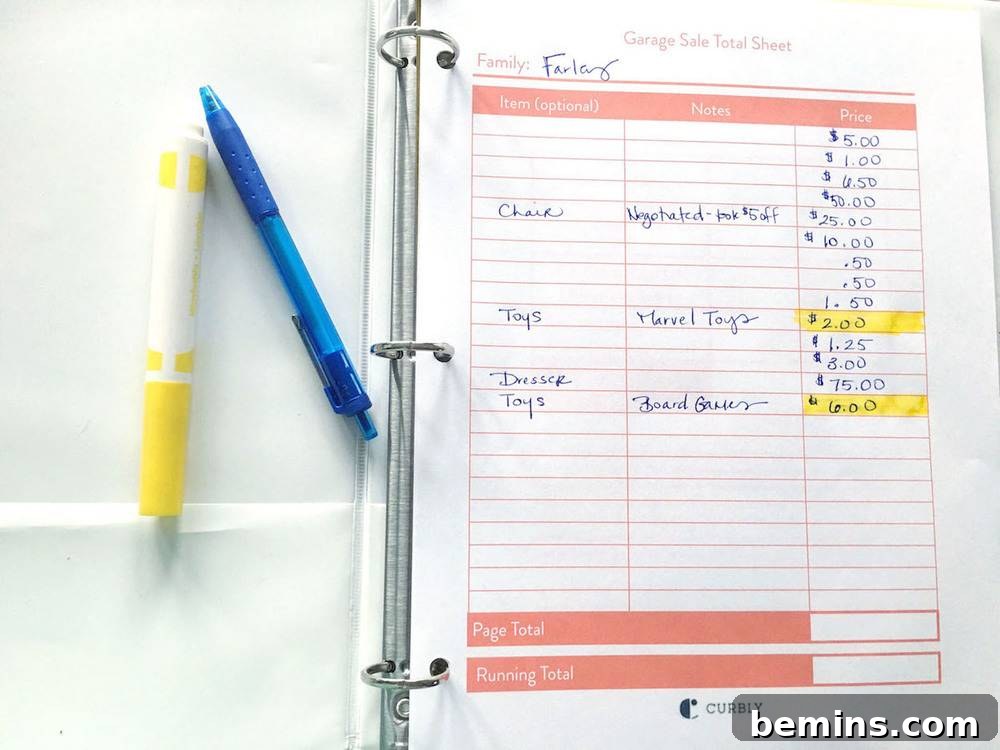 Garage Sale Total Sheet
Family: Farley
Item (optional) Notes Price
$5.00
$1.00
$6.50
$50.00
Chair Negotiated - took $5 off $25.00
$10.00
.50
.50
1.50
Toys Marvel Toys $2.00
$1.25
$3.00
Dresser $75.00
Toys Board Games $6.00
Page Total
Running Total
CURBLY
bemins.com